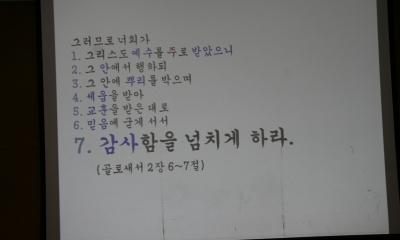 그러므로 너희가
1. 그리스도 예수를 주로 받았으니
2. 그 안에서 행하되
3. 그 안에 뿌리를 박으며
4. 세움을 받아
5. 교훈을 받은 대로
6. 믿음에 굳게 서서
7. 감사함을 넘치게 하라.
(골로새서 2장 6~7절)